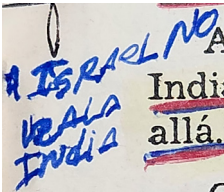 A ISRAEL NO
VEALA
INDIA
A
India
allá.